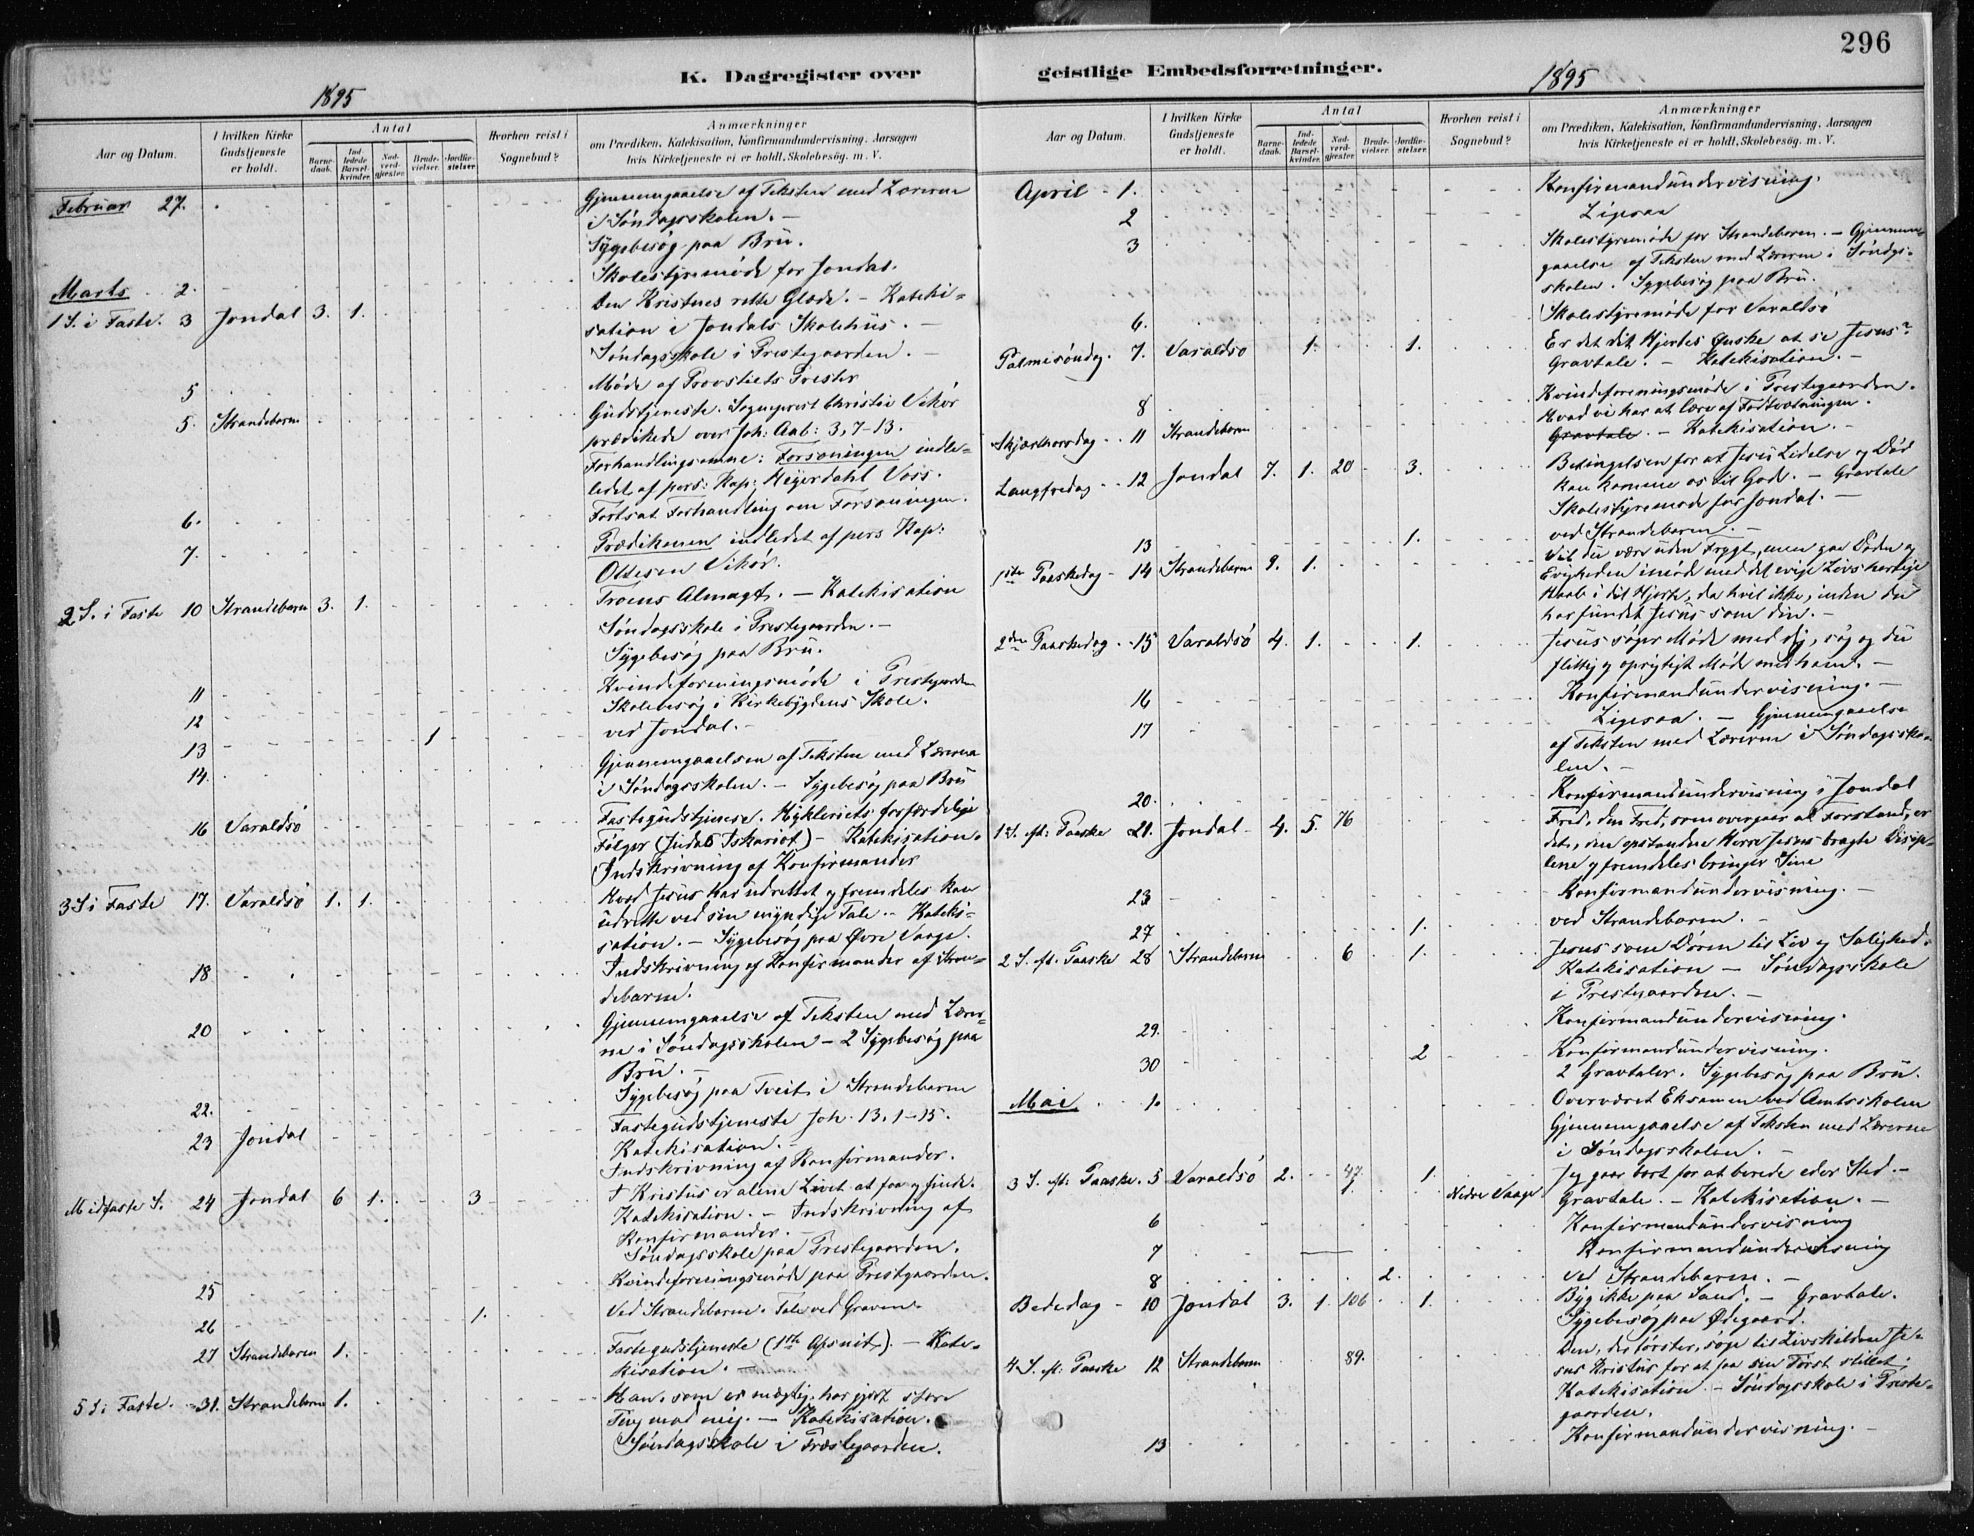 296
K. Dagregister over
geistlige Embedsforretninger.
1895
1895
Aar og Datum.
I hvilken Kirke Gudstjeneste er holdt.
Antal
Barnedaab.
Indledede Barselkvinder.
Nadverdgjester.
Brudevielser.
Jordfæstelser.
Hvorhen reist i Sognebud?
Anmærkninger
om Prædiken, Katekisation, Konfirmandundervisning. Aarsagen
hvis Kirketjeneste ei er holdt, Skolebesøg. m. V.
Februar 27. Gjennemgaaelse af Teksten med Lærerne
i Søndagsskolen. –
Sygebesøg paa Brü.
Marts 2. Skolestyremøde for Jondal.
1 S. i Faste. 3 Jondal 3. 1. Den Kristnes rette Glæde. – Kateki=
sation i Jondals Skolehus. –
Søndagsskole i Prestegaarden. –
5 Møde af Provstiets Prester
5. Strandebarm Gudstjeneste. Sogneprest Christie Vikør
prædikede over Joh: Aab: 3, 7–13.
Forhandlingsemne: Forsoningen indle=
ledet af pers: Kap: Heyerdahl Voss.
6. Fortsat Forhandling om Forsoningen.
7. Prædikenen indledet af pers Kap:
Ottesen Vikør.
2 S. i Faste 10 Strandebarm 3. 1. Troens Almagt. – Katekisation
Søndagsskole i Prestegaarden. –
Sygebesøg paa Brü.
11 Kvindeforeningsmøde i Prestegaarden
12 Skolebesøg i Kirkebygdens Skole.
13 1 ved Jondal. –
14. Gjennemgaaelsen af Teksten med Lærerne
i Søndagsskolen. – Sygebesøg paa Brü
16 Varaldsö Fastegudstjeneste. Hykleriets forfærdelige
Følger (Judas Iskariot) – Katekisation.
Indskrivning af Konfirmander
3 S i Faste 17. Varaldsö 1. 1. Hvad Jesus har udrettet og fremdeles kan
udrette ved sin myndige Tale. – Kateki=
sation. – Sygebesøg paa Øvre Vaage.
18 Indskrivning af Konfirmander af Stran=
debarm.
20 Gjennemgaaelse af Teksten med Lærer=
ne i Søndagsskolen – 2 Sygebesøg paa
Brü. –
22. Sygebesøg paa Tveit i Strandebarm
23 Jondal Fastegudstjeneste Joh. 13. 1–15.
Katekisation. –
Indskrivning af Konfirmander.
Midfaste S. 24 Jondal 6 1. 3 I Kristus er alene Livet at faa og finde.
Katekisation. – Indskrivning af
Konfirmander. –
Søndagsskole paa Prestegaarden.
25 Kvindeforeningsmøde paa Prestgaarden.
26 1. Ved Strandebarm. Tale ved Graven.
27 Strandebarm 1. Fastegudstjeneste (1ste Afsnit). – Kate=
kisation. –
5 S i Faste. 31. Strandebarm 1. Han, som er mægtig, har gjort store
Ting mod mig. – Katekisation.
Søndagsskole i Præstegaarden.
Aar og Datum.
I hvilken Kirke Gudstjeneste er holdt.
Antal
Barnedaab.
Indledede Barselkvinder.
Nadverdgjester.
Brudevielser.
Jordfæstelser.
Hvorhen reist i Sognebud?
Anmærkninger
om Prædiken, Katekisation, Konfirmandundervisning. Aarsagen
hvis Kirketjeneste ei er holdt, Skolebesøg. m. V.
April 1. Konfirmandundervisning.
2 Ligesaa
3 Skolestyremøde for Strandebarm. – Gjennem=
gaaelse af Teksten med Lærerne i Søndgs=
skolen. Sygebesøg paa Brü.
6. Skolestyremøde for Varaldsö
Palmesøndag. 7. Varaldsö 1. 1. Er det dit Hjertes Ønske at se Jesus?
Gravtale. – Katekisation. –
8 Kvindeforeningsmøde i Prestegaarden.
Skjærthorsdag 11 Strandebarm Hvad vi har at lære af Fodtvætningen.
Gravtale. – Katekisation. –
Langfredag 12 Jondal 7. 1. 20 3. Betingelsen for at Jesu Lidelse og Død
kan komme os til Gode. – Gravtale
Skolestyremøde for Jondal. –
13 1. ved Strandebarm. –
1ste Paaskedag 14 Strandebarm 9. 1. Vil du være uden Frygt, men gaa Døden og
Evigheden imøde med det evige Livs herlige
Haab i dit Hjerte, da hvil ikke, inden du
har fundet Jesus som din. –
2den Paaskedag 15 Varaldsö 4. 1. 1. Jesus søger Møde med dig, søg og du
flittig og oprigtigt Møde med ham. –
16 Konfirmandundervisning. –
17 Ligesaa. – Gjennemgaaelse
af Teksten med Lærerne i Søndagsskо=
len. –
20. Konfirmandundervisning i Jondal
1 S. ef: Paaske 21. Jondal 4. 5. 76 Fred, den Fred, som overgaar al Forstand, er
det, den opstandne Herre Jesus bragte Disip=
lene og fremdeles bringer Sine
23 Konfirmandundervisning. –
27 1. ved Strandebarm. –
2 S. ef. Paaske 28 Strandebarm 6 1. Jesus som Døren til Liv og Salighed.
Katekisation – Søndagsskole
i Prestegaarden. –
29. Konfirmandundervisning.
30 2 Konfirmandundervisning.
2 Gravtaler. Sygebesøg paa Brü.
Mai 1. Overværet Eksamen ved Amtsskolen
Gjennemgaaelse af Teksten med Lærerne
i Søndagsskolen. –
3 S. ef. Paaske. 5 Varaldsö 2. 47 1. Jeg gaar bort for at berede eder Sted. –
1. Nedre Vaage Gravtale. – Katekisation. –
6 Konfirmandundervisning
7 Konfirmandundervisning
8 2. ved Strandebarm. –
Bededag 10 Jondal 3. 1 106 1. Byg ikke paa Sand. – Gravtale.
Sygebesøg paa Ødegaard.
4 S. ef: Paaske 12 Strandebarm 89. Den, der tørster, søge til Livskilden Je=
sus Kristus for at faa sin Tørst stillet.
Katekisation – Søndagsskole i Preste=
gaarden.
13 Konfirmandundervisning. –